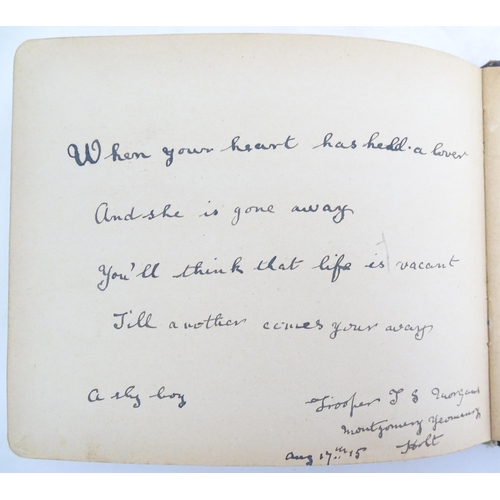 When your heart has held a lover
And she is gone away
You'll think that life is vacant
Till another comes your way
A shy boy
Trooper T E Morgans
Montgomery Yeomanry
Holt
Aug 17th 15